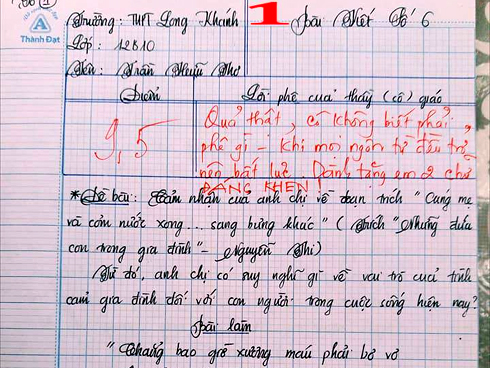 Thành Đạt
Trường: THPT Long Khánh 1 Bài Viết Số 6
Lớp: 12B10
Tên: Trần Thơ
Điểm Lời phê của thầy (cô) giáo
9,5
Quả thật, cô không biết phải
phê gì - khi mọi ngôn từ đều trở
nên bất lực. Dành tặng em 2 chữ
ĐÁNG KHEN!
* Đề bài: Cảm nhận của anh chị về đoạn trích "Cúng mẹ
và cơm nước xong... sang bưng khác" (Trích "Những đứa
con trong gia đình" - Nguyễn Thi)
Từ đó, anh chị có suy nghĩ gì về vai trò của tình
cảm gia đình đối với con người trong cuộc sống hiện nay?
Bài làm
"Chẳng bao giờ xương máu phải bơ vơ